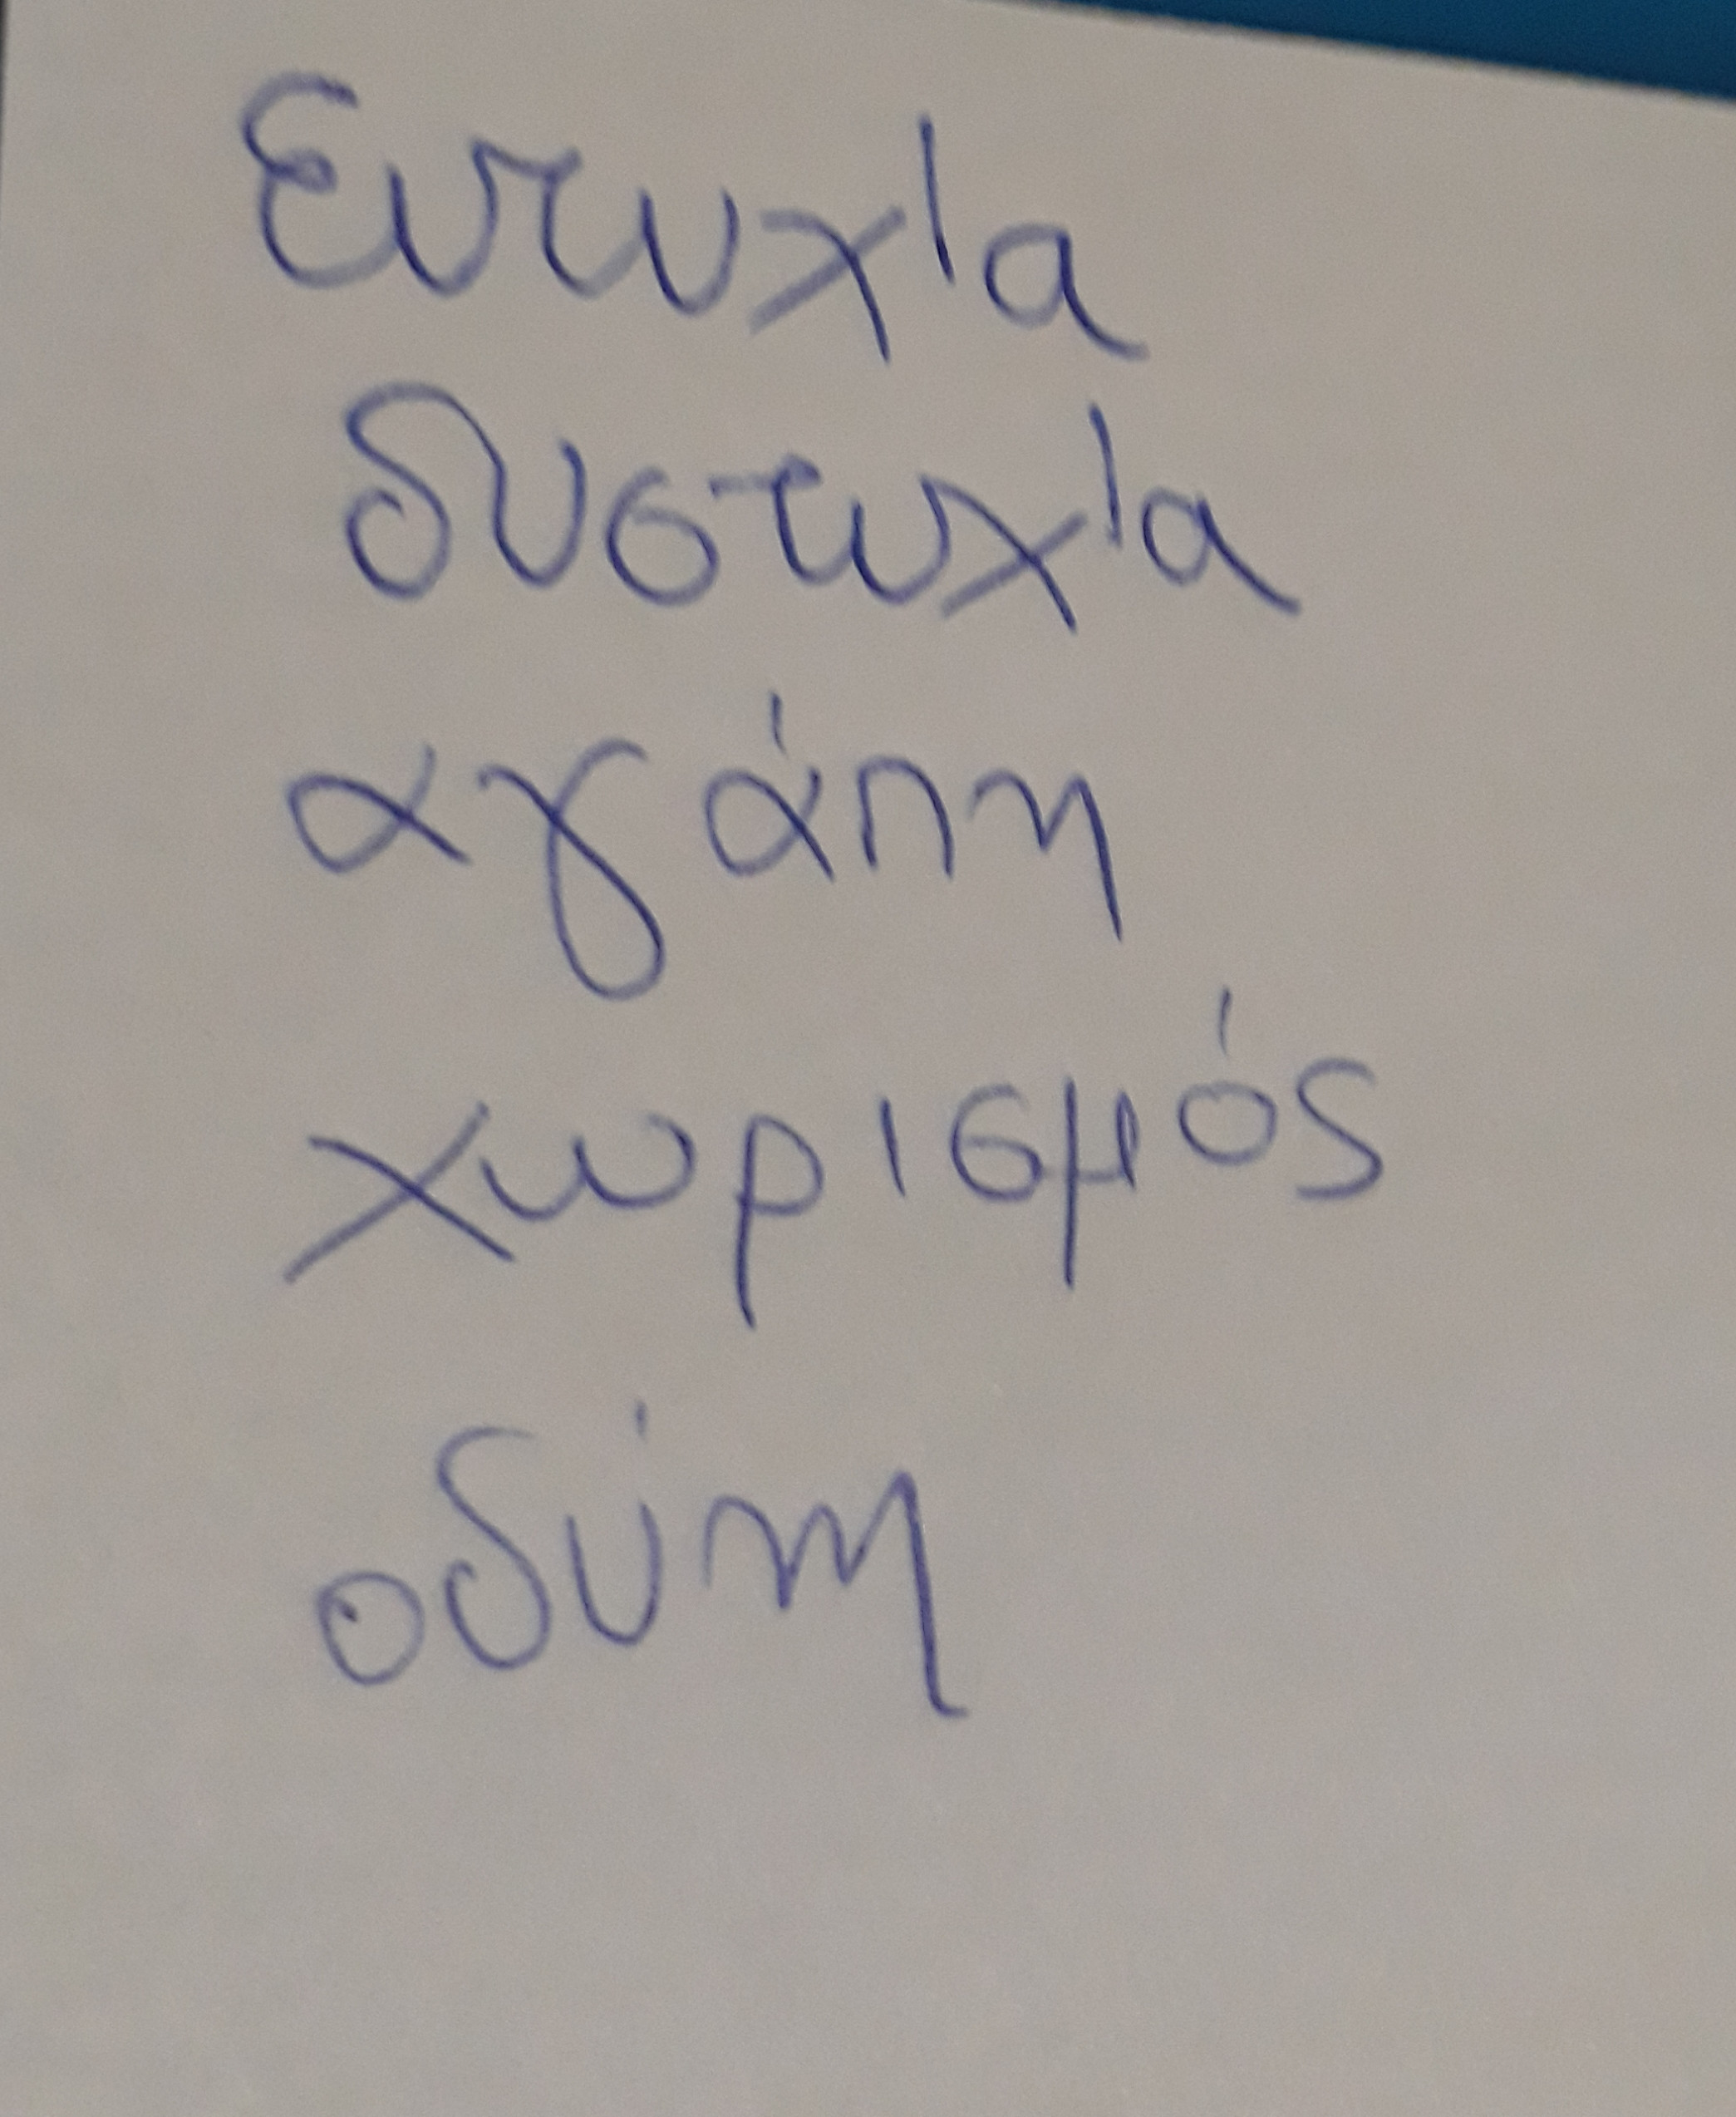 ευτυχία
δυστυχία
αγάπη
χωρισμός
οδύνη